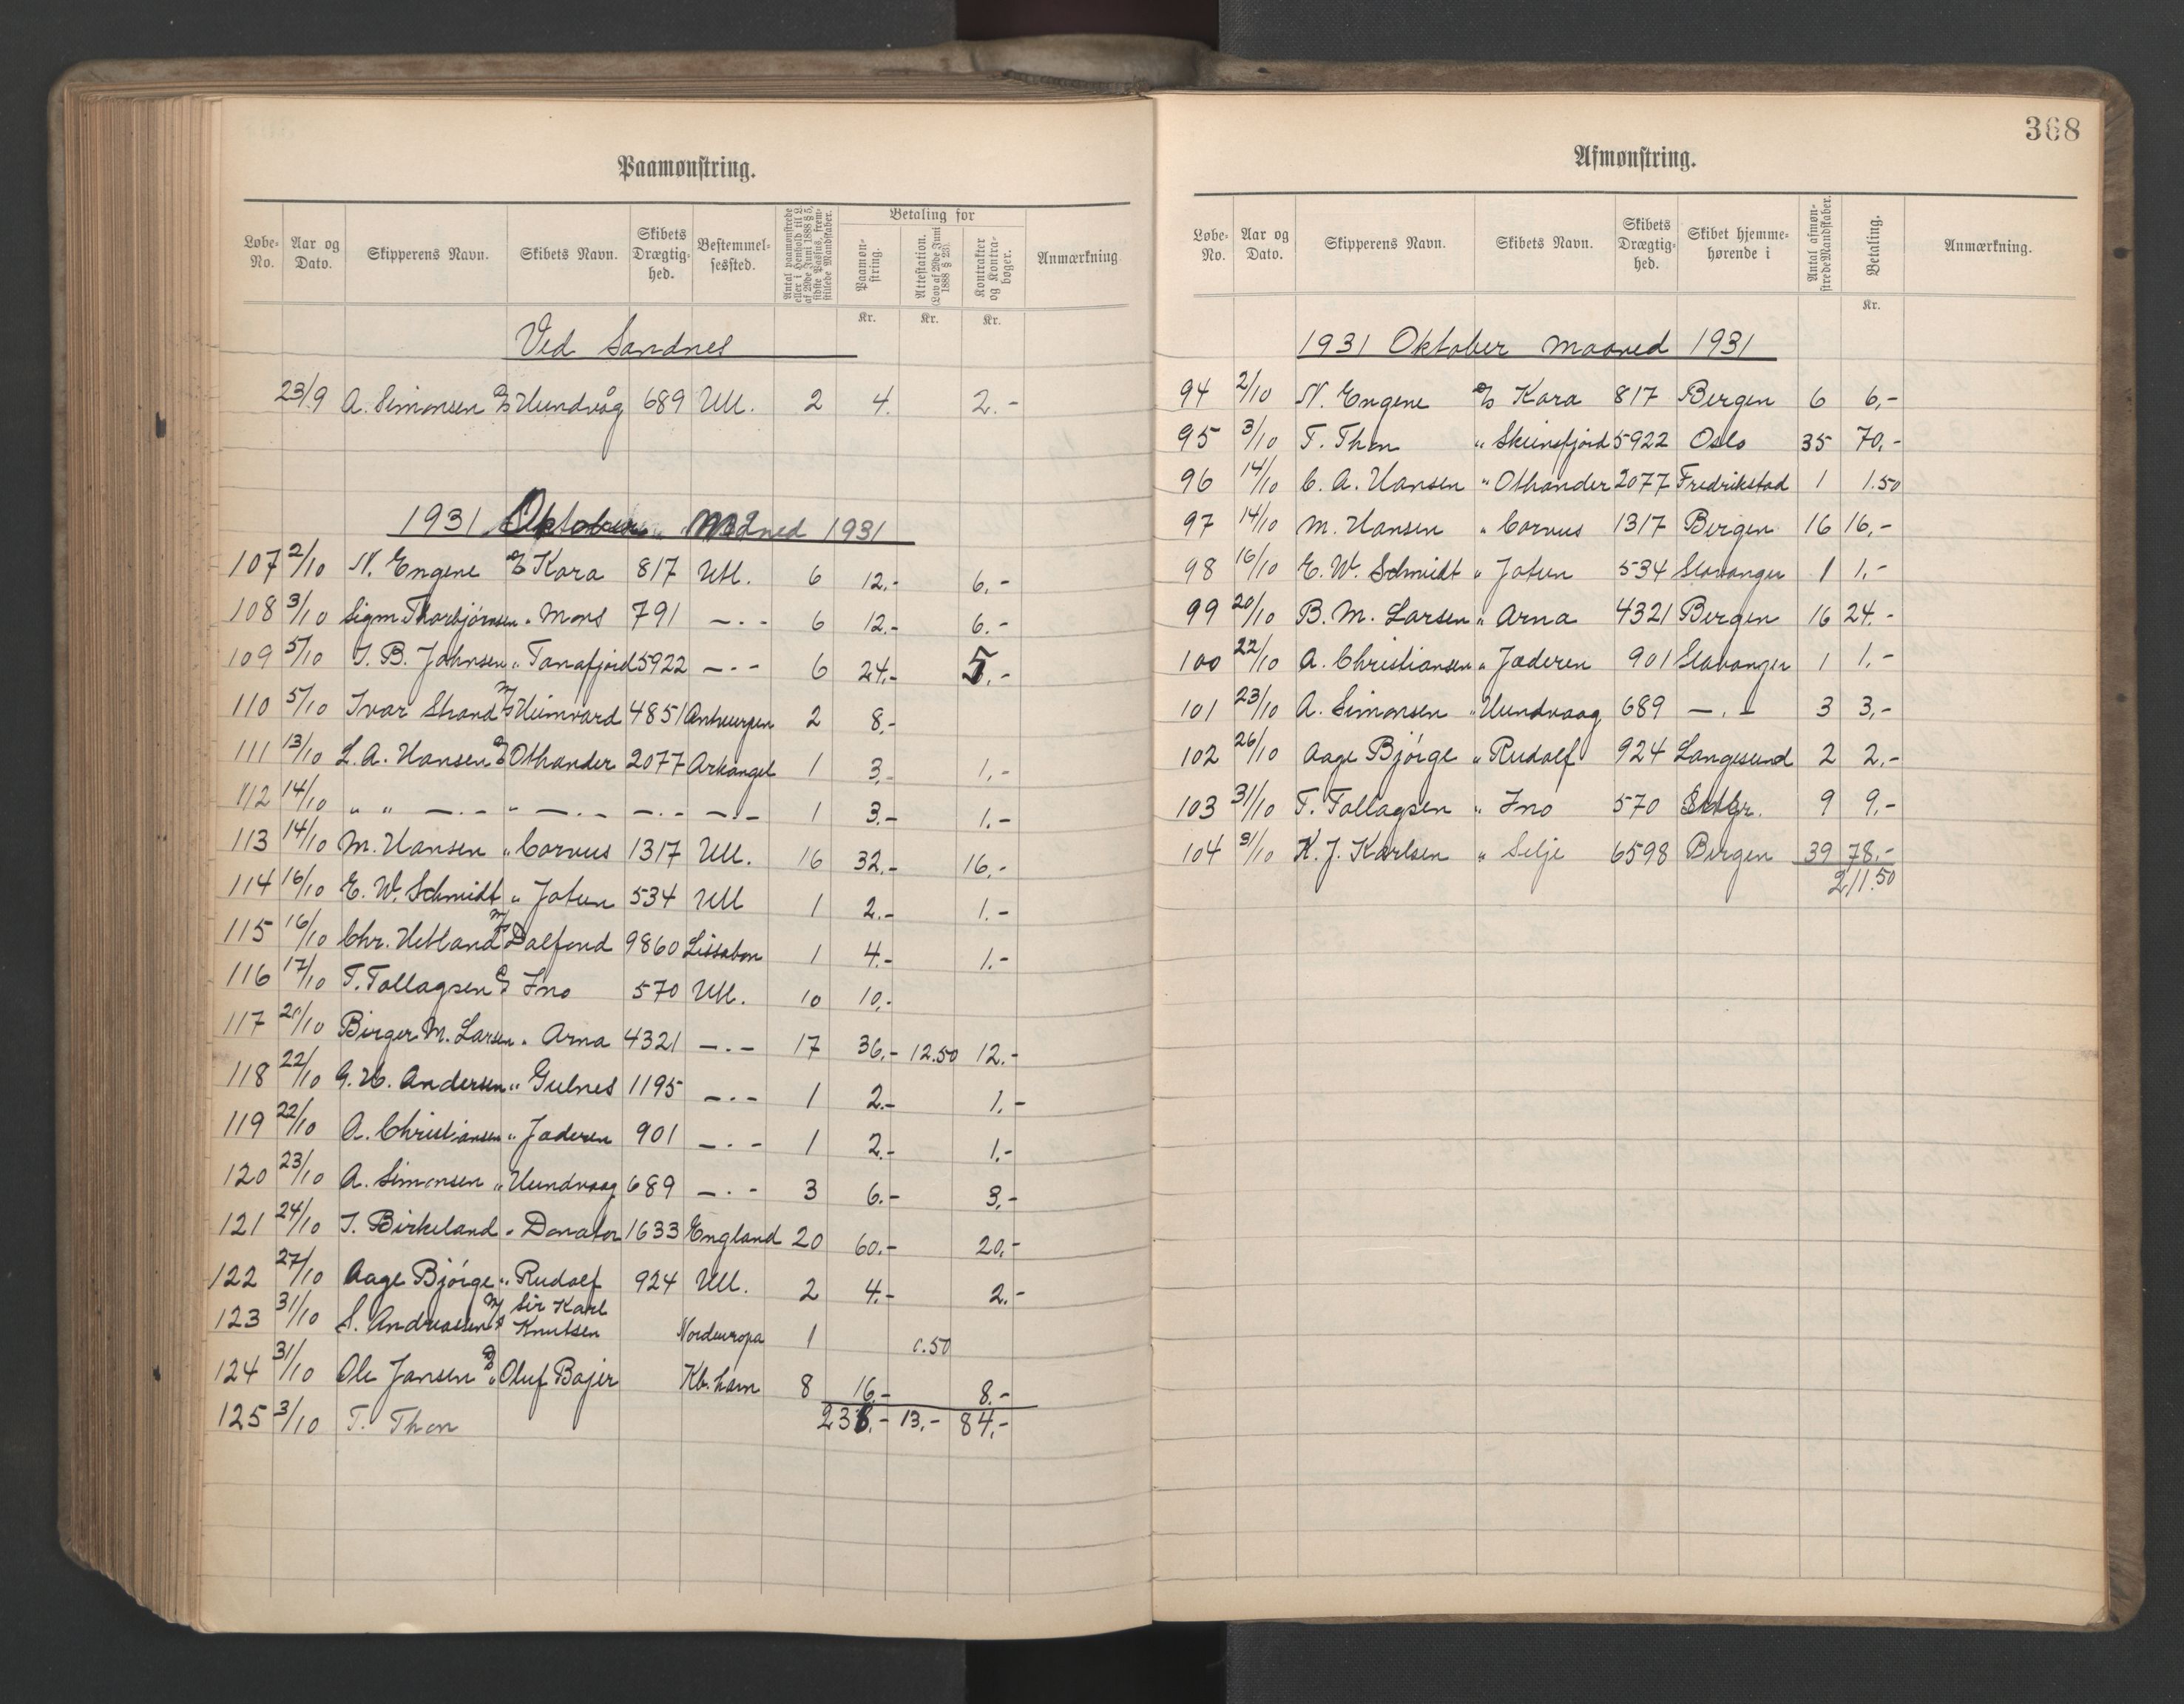 Paamønstring.
Løbe-No. Aar og Dato. Skipperens Navn. Skibets Navn. Skibets Drægtig-hed. Bestemmel-sessted. Antal paamønstrede eller i Henhold til L. af 29de Juni 1888 § 5, sidste Passus, frem-stillede Mandskaber. Betaling for Paamøn-string. Attestation. (Lov af 29de Juni 1888 § 23). Kontrakter og Kontra-bøger. Anmærkning.
Kr. Kr. Kr.
Ved Sandnes
23/9 A. Simonsen D/S Hundvåg 689 Utl. 2 4. 2.-
1931 Oktober Måned 1931
107 2/10 N. Engene D/S Kora 817 Utl. 6 12.- 6.-
108 3/10 Sigm Thorbjørnsen " Mons 791 -.- 6 12.- 6.-
109 5/10 J. B. Johnsen " Tanafjord 5922 -.- 6 24.- 5.-
110 5/10 Ivar Strand M/S Heimvard 4851 Antwerpen 2 8.-
111 13/10 L. A. Hansen D/S Othander 2077 Arkangel 1 3.- 1.-
112 14/10 " " -.- " -.- -.- -.- 1 3.- 1.-
113 14/10 M. Hansen " Corvus 1317 Utl. 16 32.- 16.-
114 16/10 E. W. Schmidt " Jotun 534 Utl 1 2.- 1.-
115 16/10 Chr. Hetland M/S Dalfonn 9860 Lissabon 1 4.- 1.-
116 17/10 T. Tollagsen D/S Ino 570 Utl. 10 10.-
117 20/10 Birger M. Larsen " Arna 4321 -.- 17 36.- 12.50 12.-
118 22/10 G. H. Andersen " Gulnes 1195 -.- 1 2.- 1.-
119 22/10 A. Christiansen " Jæderen 901 -.- 1 2.- 1.-
120 23/10 A. Simonsen " Hundvaag 689 -.- 3 6.- 3.-
121 24/10 J. Birkeland " Donator 1633 England 20 60.- 20.-
122 27/10 Aage Bjørge " Rudolf 924 Utl. 2 4.- 2.-
123 31/10 S. Andreassen M/S Sir Karl Knutsen Nordeuropa 1 0.50
124 31/10 Ole Jansen D/S " Oluf Bajer Kb.havn 8 16.- 8.-
125 3/10 T. Thon 236.- 13.- 84.-
368
Afmønstring.
Løbe-No. Aar og Dato. Skipperens Navn. Skibets Navn. Skibets Drægtig-hed. Skibet hjemme-hørende i Antal afmøn-strede Mandskaber. Betaling. Anmærkning.
Kr.
1931 Oktober Maaned 1931
94 2/10 N. Engene D/S Kora 817 Bergen 6 6,-
95 3/10 T. Thon " Skiensfjord 5922 Oslo 35 70.-
96 14/10 C. A. Hansen " Othander 2077 Fredrikstad 1 1.50
97 14/10 M. Hansen " Corvus 1317 Bergen 16 16,-
98 16/10 E. W. Schmidt " Jotun 534 Stavanger 1 1.-
99 20/10 B. M. Larsen " Arna 4321 Bergen 16 24.-
100 22/10 A. Christiansen " Jæderen 901 Stavanger 1 1.-
101 23/10 A. Simonsen " Hundvaag 689 -.- 3 3,-
102 26/10 Aage Bjørge " Rudolf 924 Langesund 2 2,-
103 31/10 T. Tollagsen " Ino 570 9 9,-
104 31/10 K. J. Karlsen " Selje 6598 Bergen 39 78.-
211.50